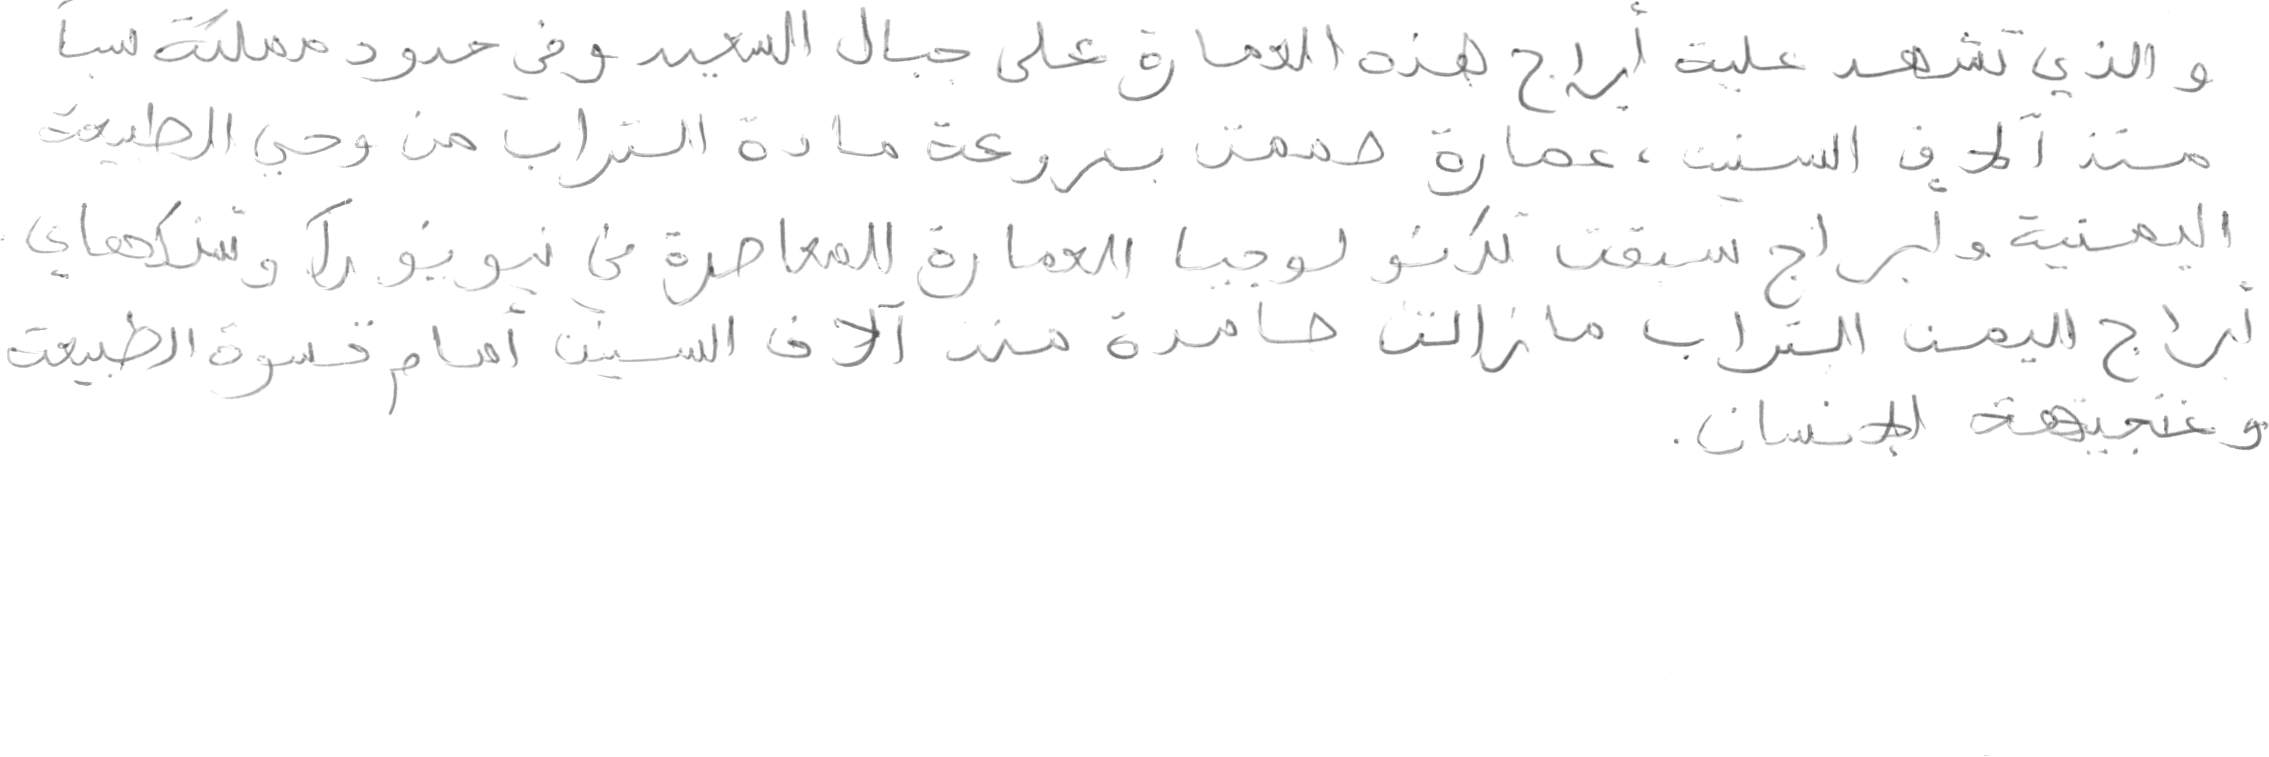 والذي تشهد علية أبراج هذه العمارة على جبال السعيد وفي حدود مملكة سبأ
منذ آلاف السنين ، عمارة صممت بروعة مادة التراب من وحي الطبيعة
اليمنية ولبراج سبقت تكنولوجيا العمارة المعاصرة في نيويورك وشنكهاي
أبراج اليمن التراب مازالت صامدة منذ آلاف السنين أمام قسوة الطبيعة
وعنجيهة الإنسان.